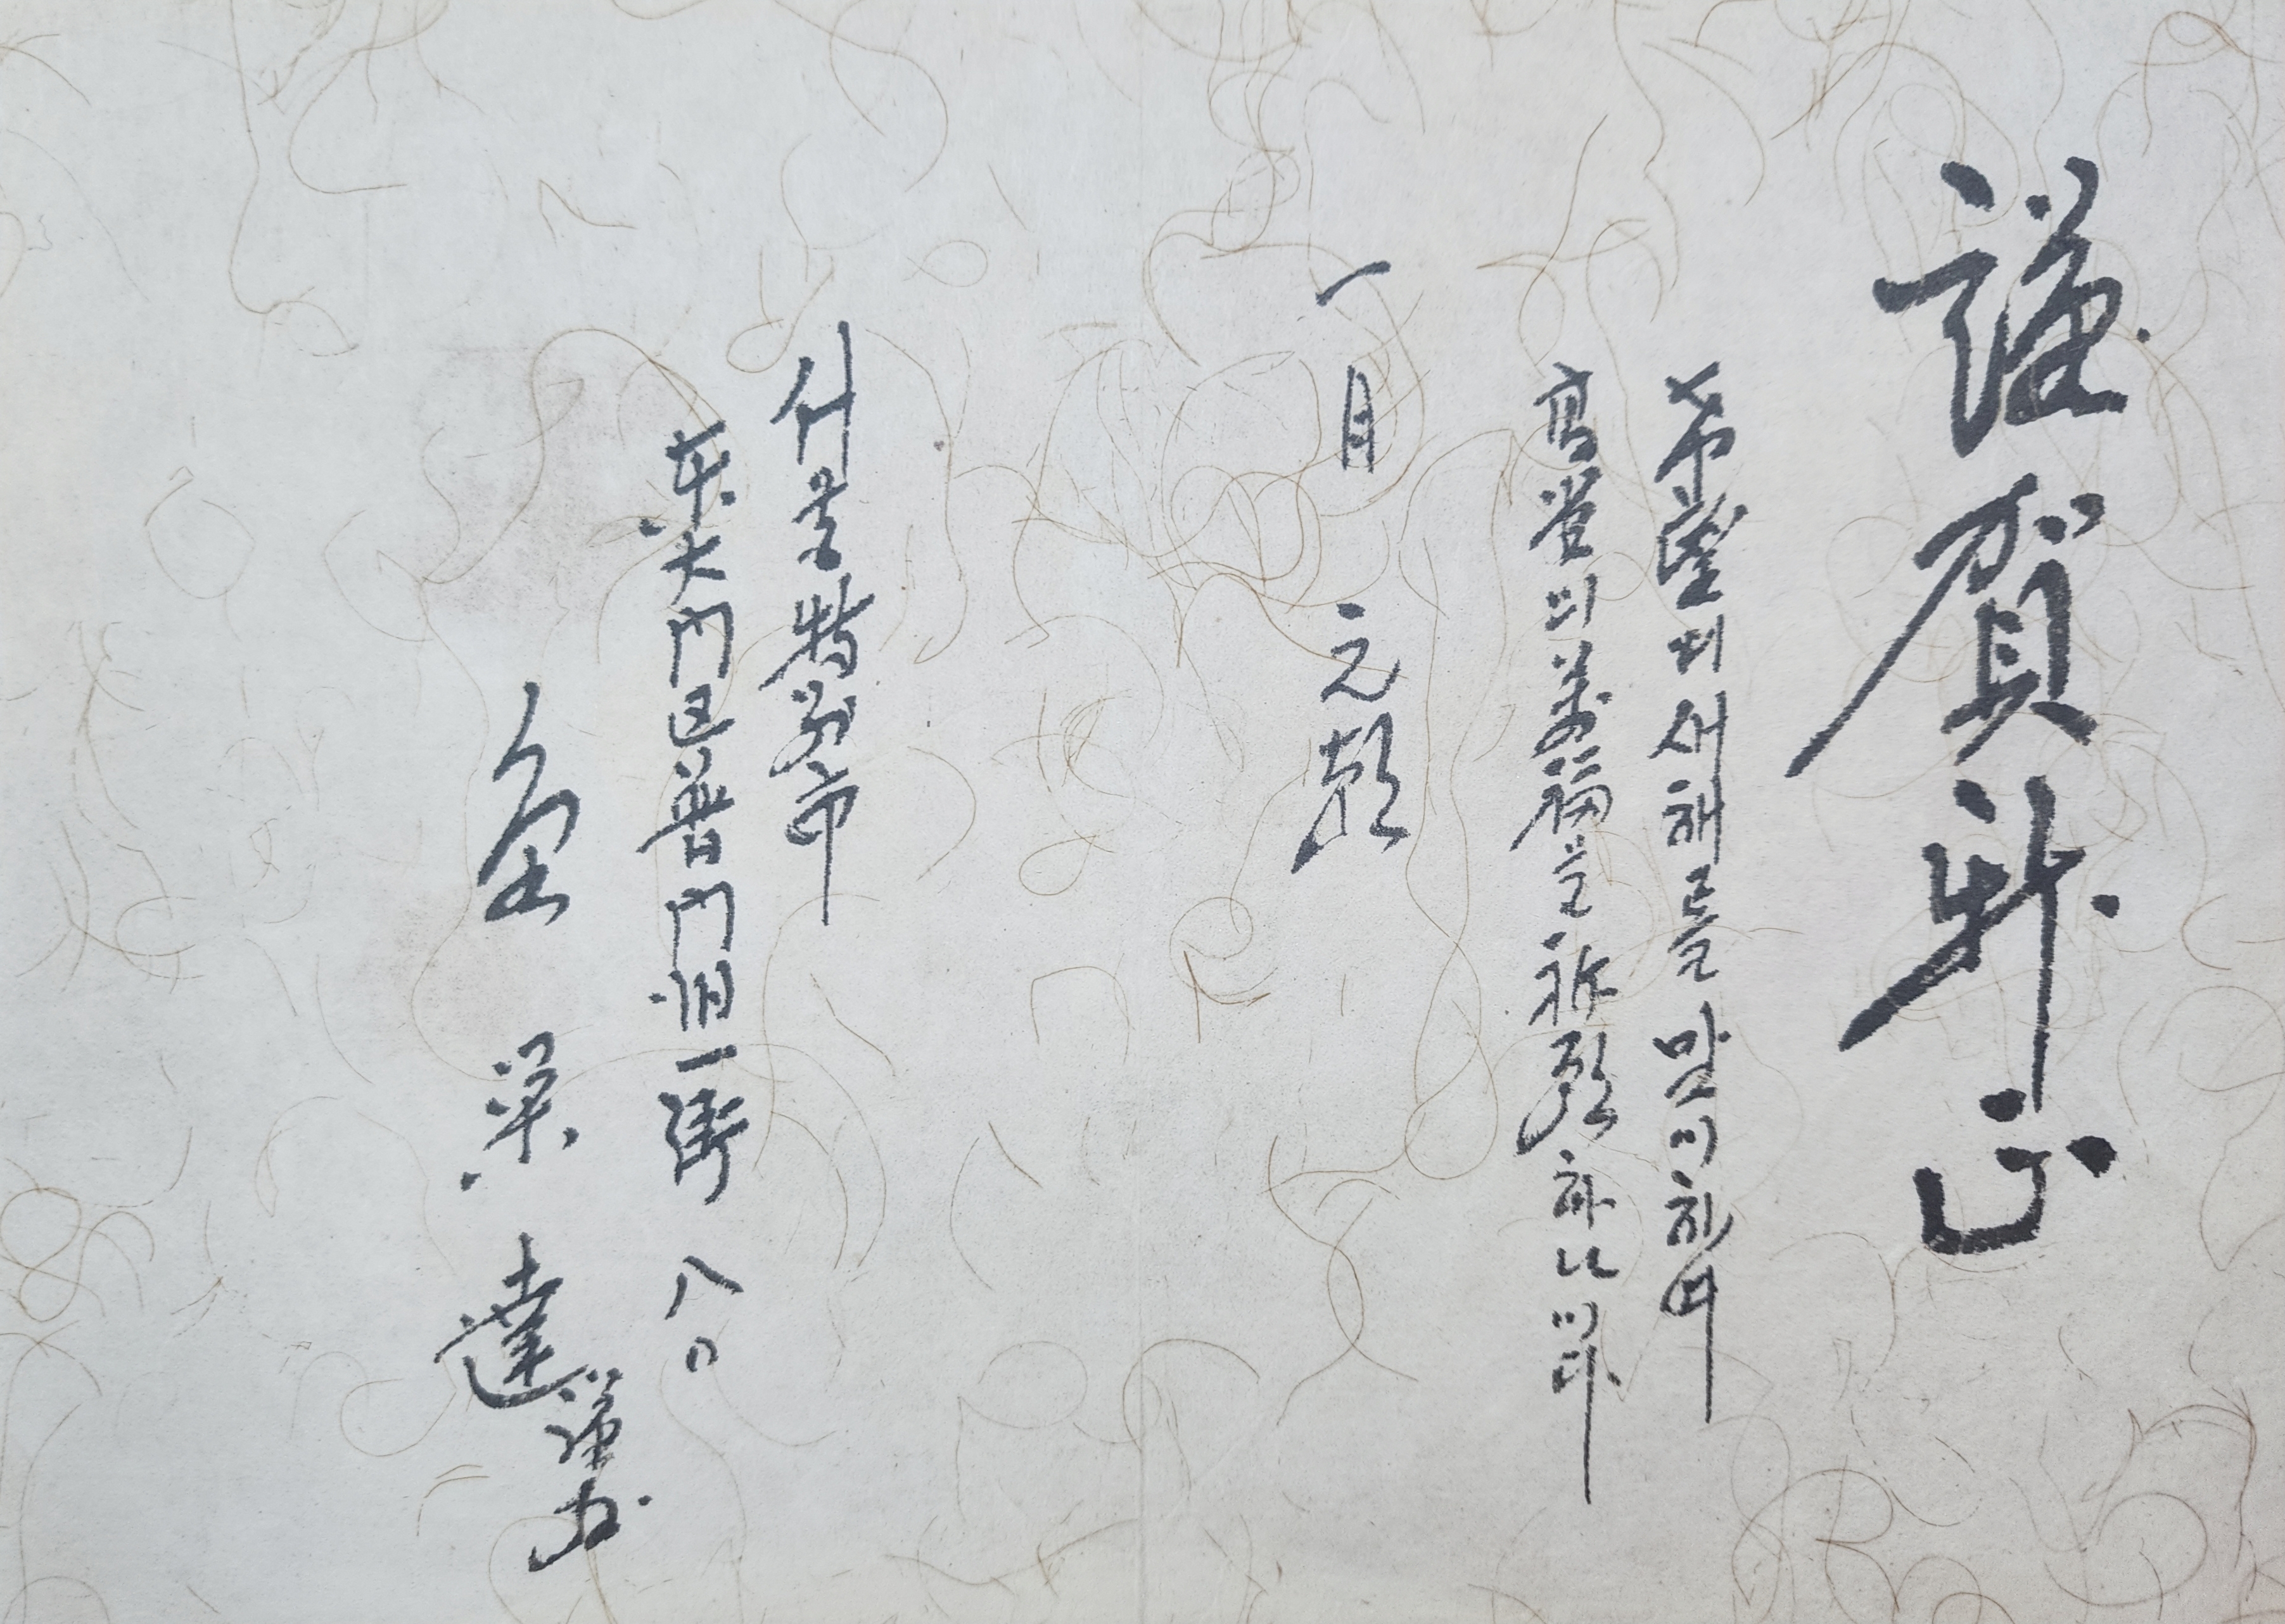 謹賀新正
希望의 새해를 맞이하여
高堂의 萬福을 祈願하나이다
一月 元朝
서울特別市
東大門区普門洞一街 八〇
金 達